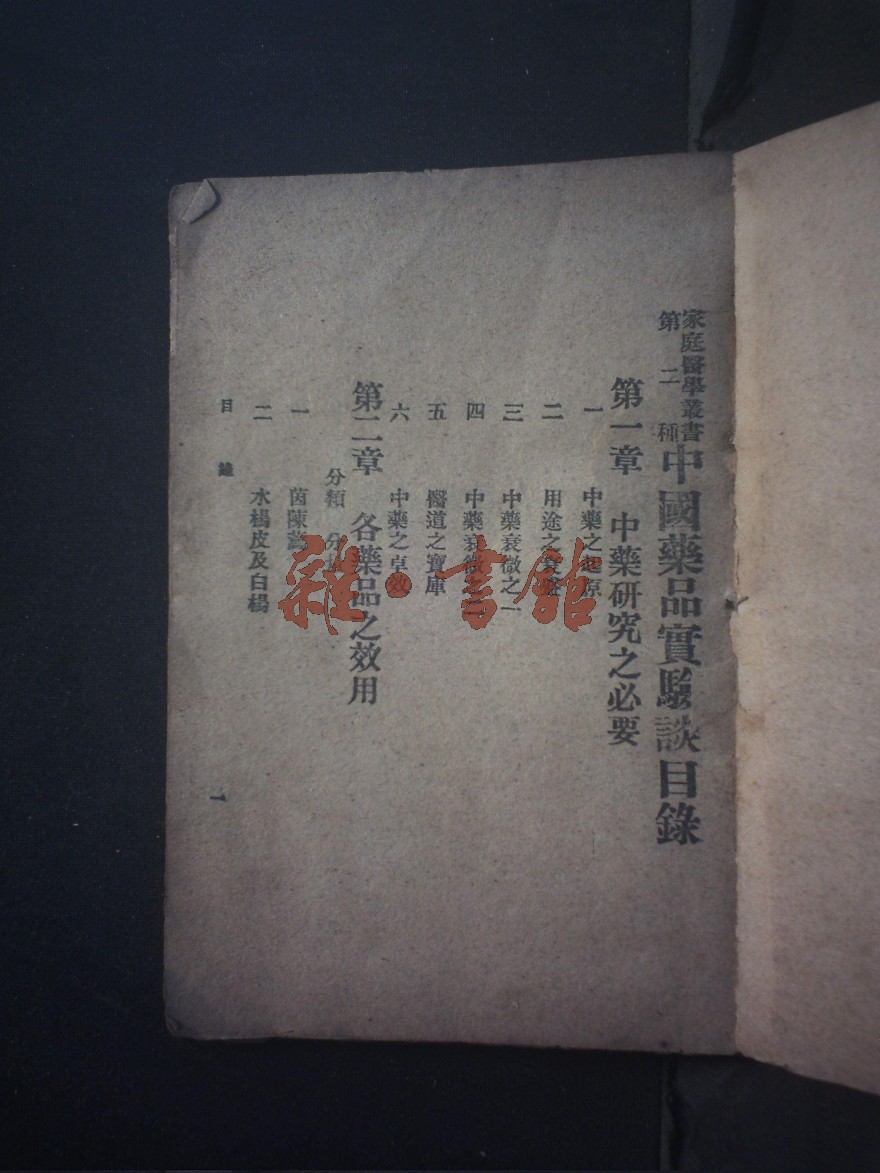 家庭醫學叢書
第二種
中國藥品實驗談目錄
第一章 中藥研究之必要
一 中藥之起原
二 用途之
三 中藥衰微之一
四 中藥衰微之二
五 醫道之寶庫
六 中藥之卓效
第二章 各藥品之效用
分類 分
一 茵陳蒿
二 水楊皮及白楊
目錄
一
雜·書館